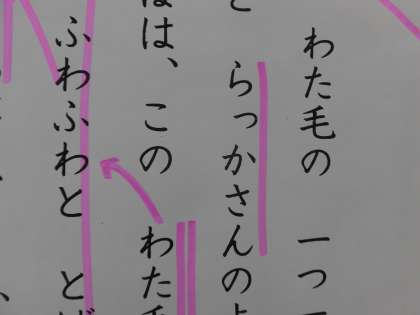 わた毛の 一つ
と らっかさんの
は、この わた
ふわふわと と